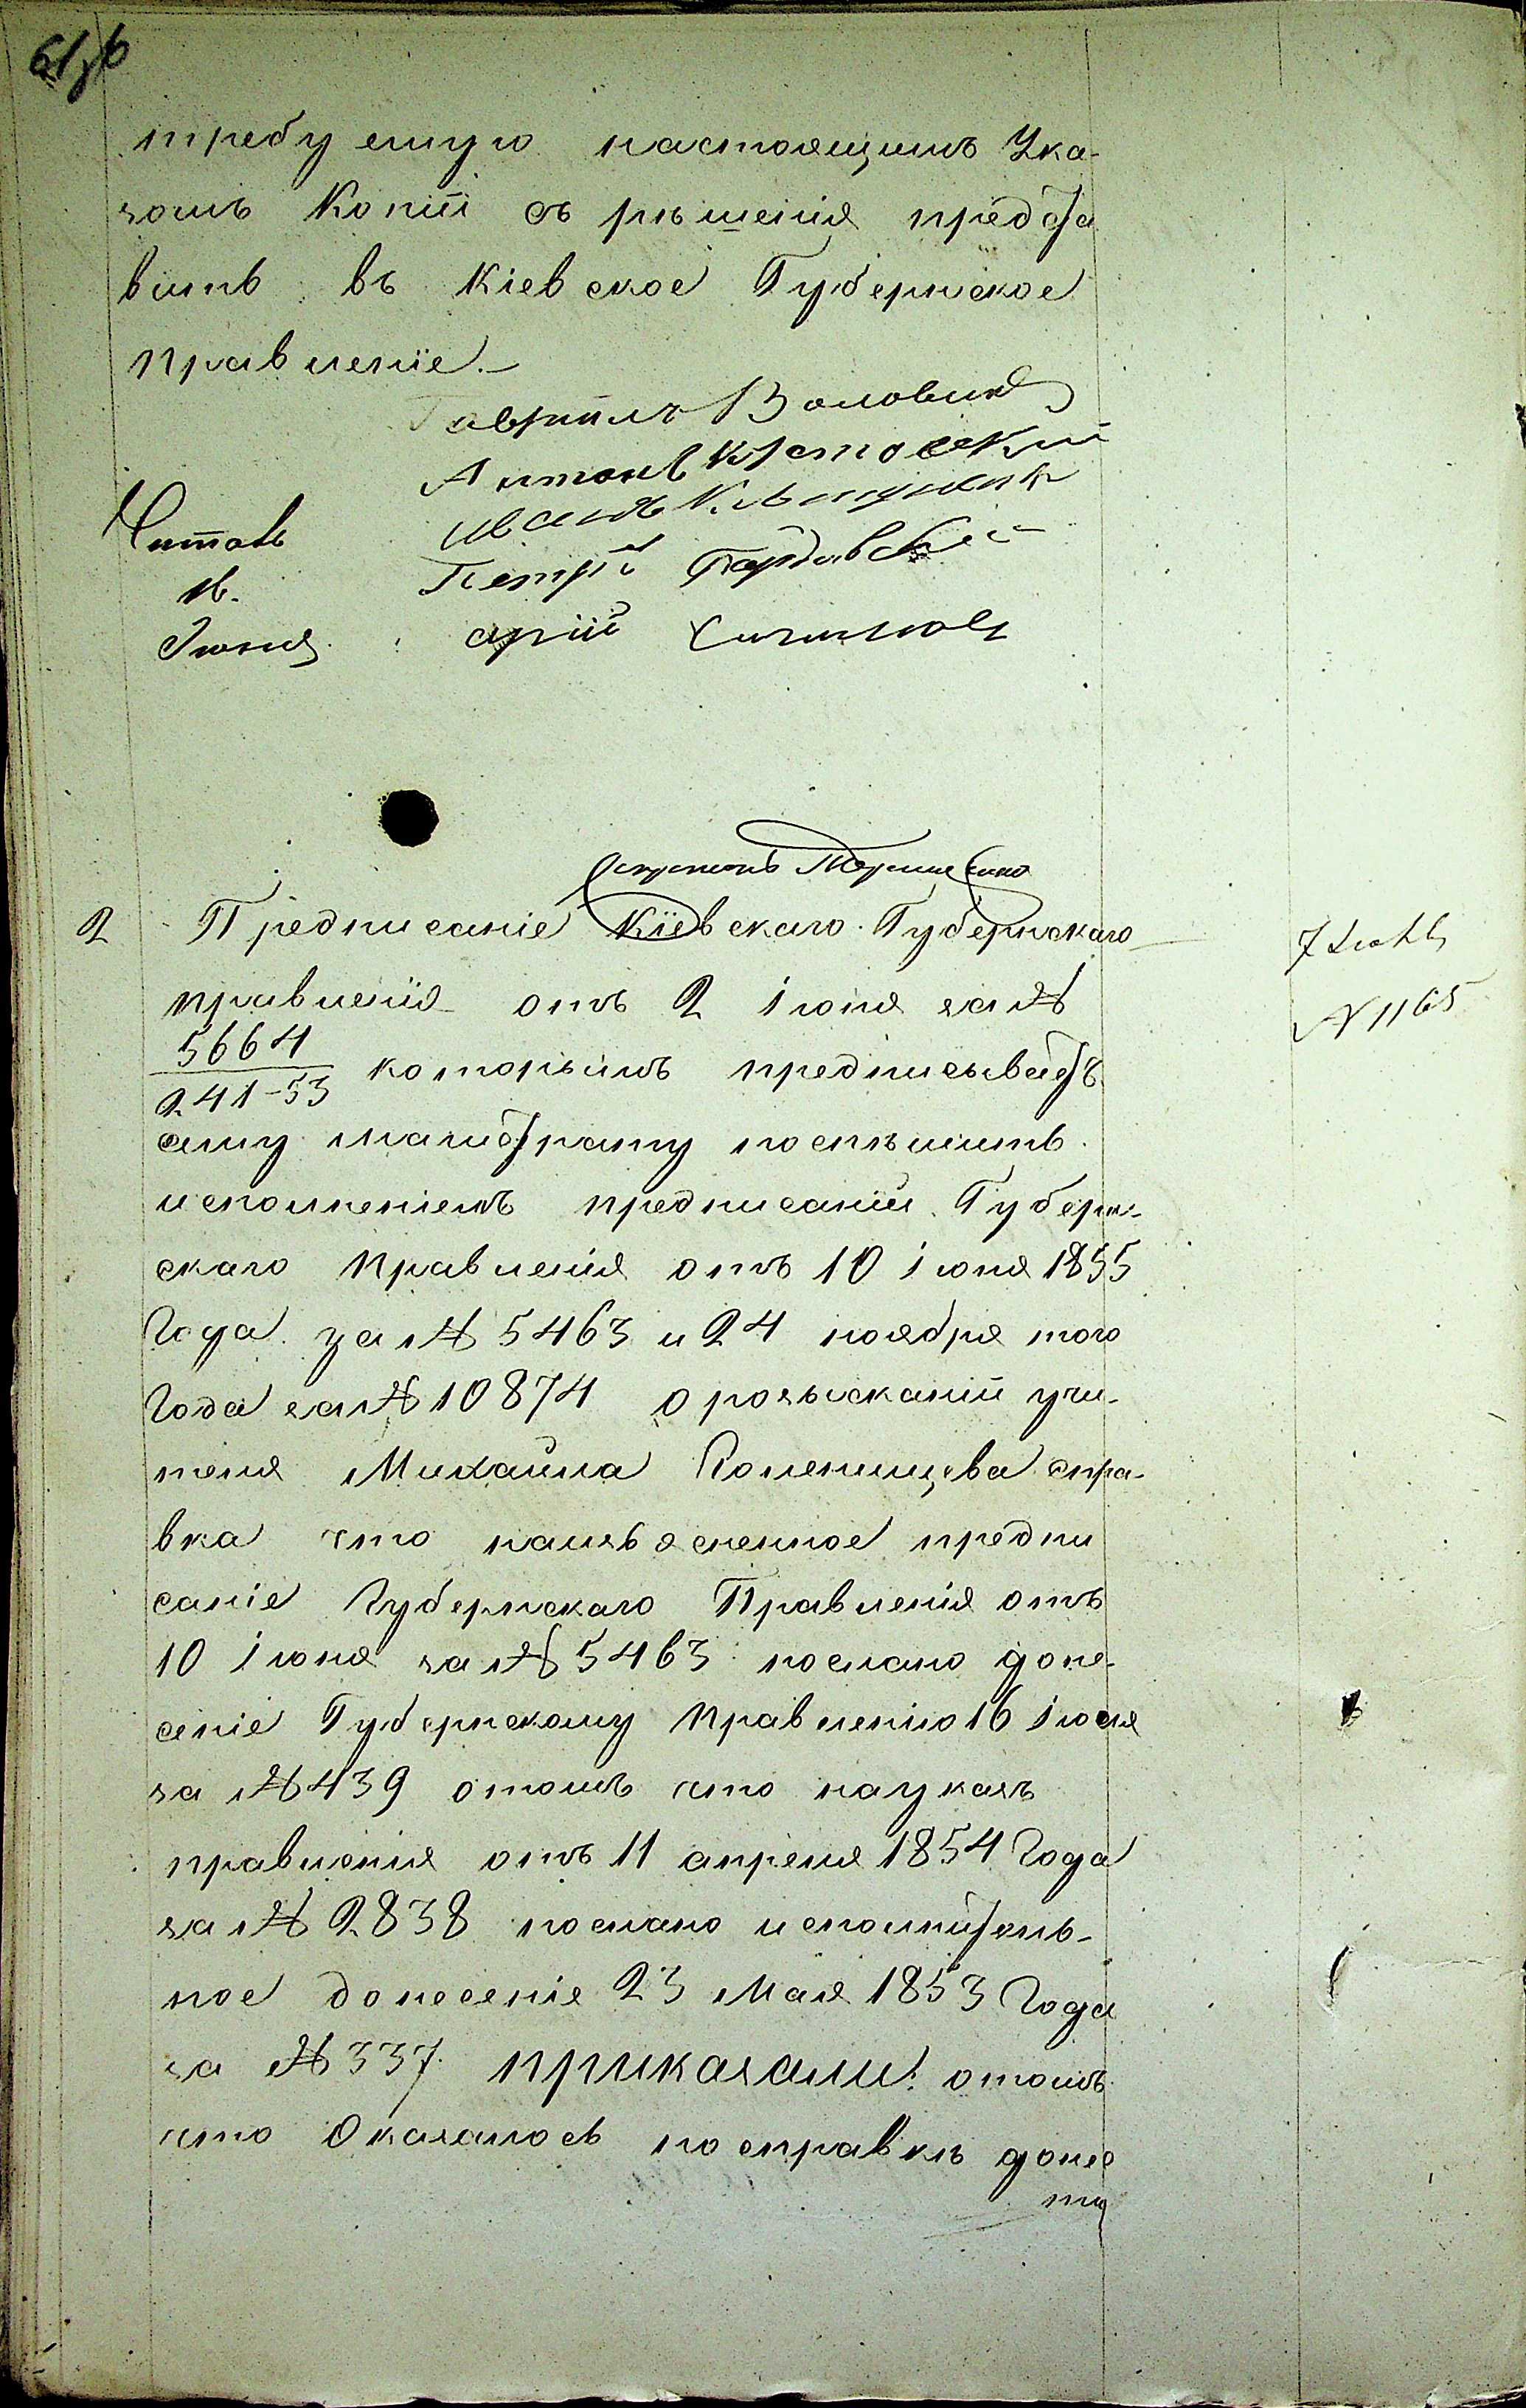 требуемую настоящимъ Ука-
зомъ Копіи съ рѣшенія предста
вить въ Кіевское Губернское
правленіе.
Гавріилъ Воловик
Антонъ
Читалъ
16.
Іюня
Иванъ
Петръ
2 Предписаніе Кіевскаго Губернскаго
7 Іюня
правленія отъ 2 іюня за №
№ 1165
5664
241-53 которымъ предписываетъ
сему магистрату поспѣшить
исполненіемъ предписаній Губерн-
скаго Правленія отъ 10 іюня 1855
Года за № 5463 и 24 ноября того
Года за № 10874 о розысканіи учи-
теля Михайла Голенищева спра-
вка что наизъясненное предпи
саніе Губернскаго Правленія отъ
10 іюня за № 5463 послано доне-
сеніе Губернскому Правленію 16 іюля
за № 439 отомъ что науказъ
правленія отъ 11 апреля 1854 Года
за № 2838 послано исполнитель-
ное донесеніе 23 Мая 1853 Года
за № 337. приказали: отомъ
что Оказалось посправкѣ доне
сти